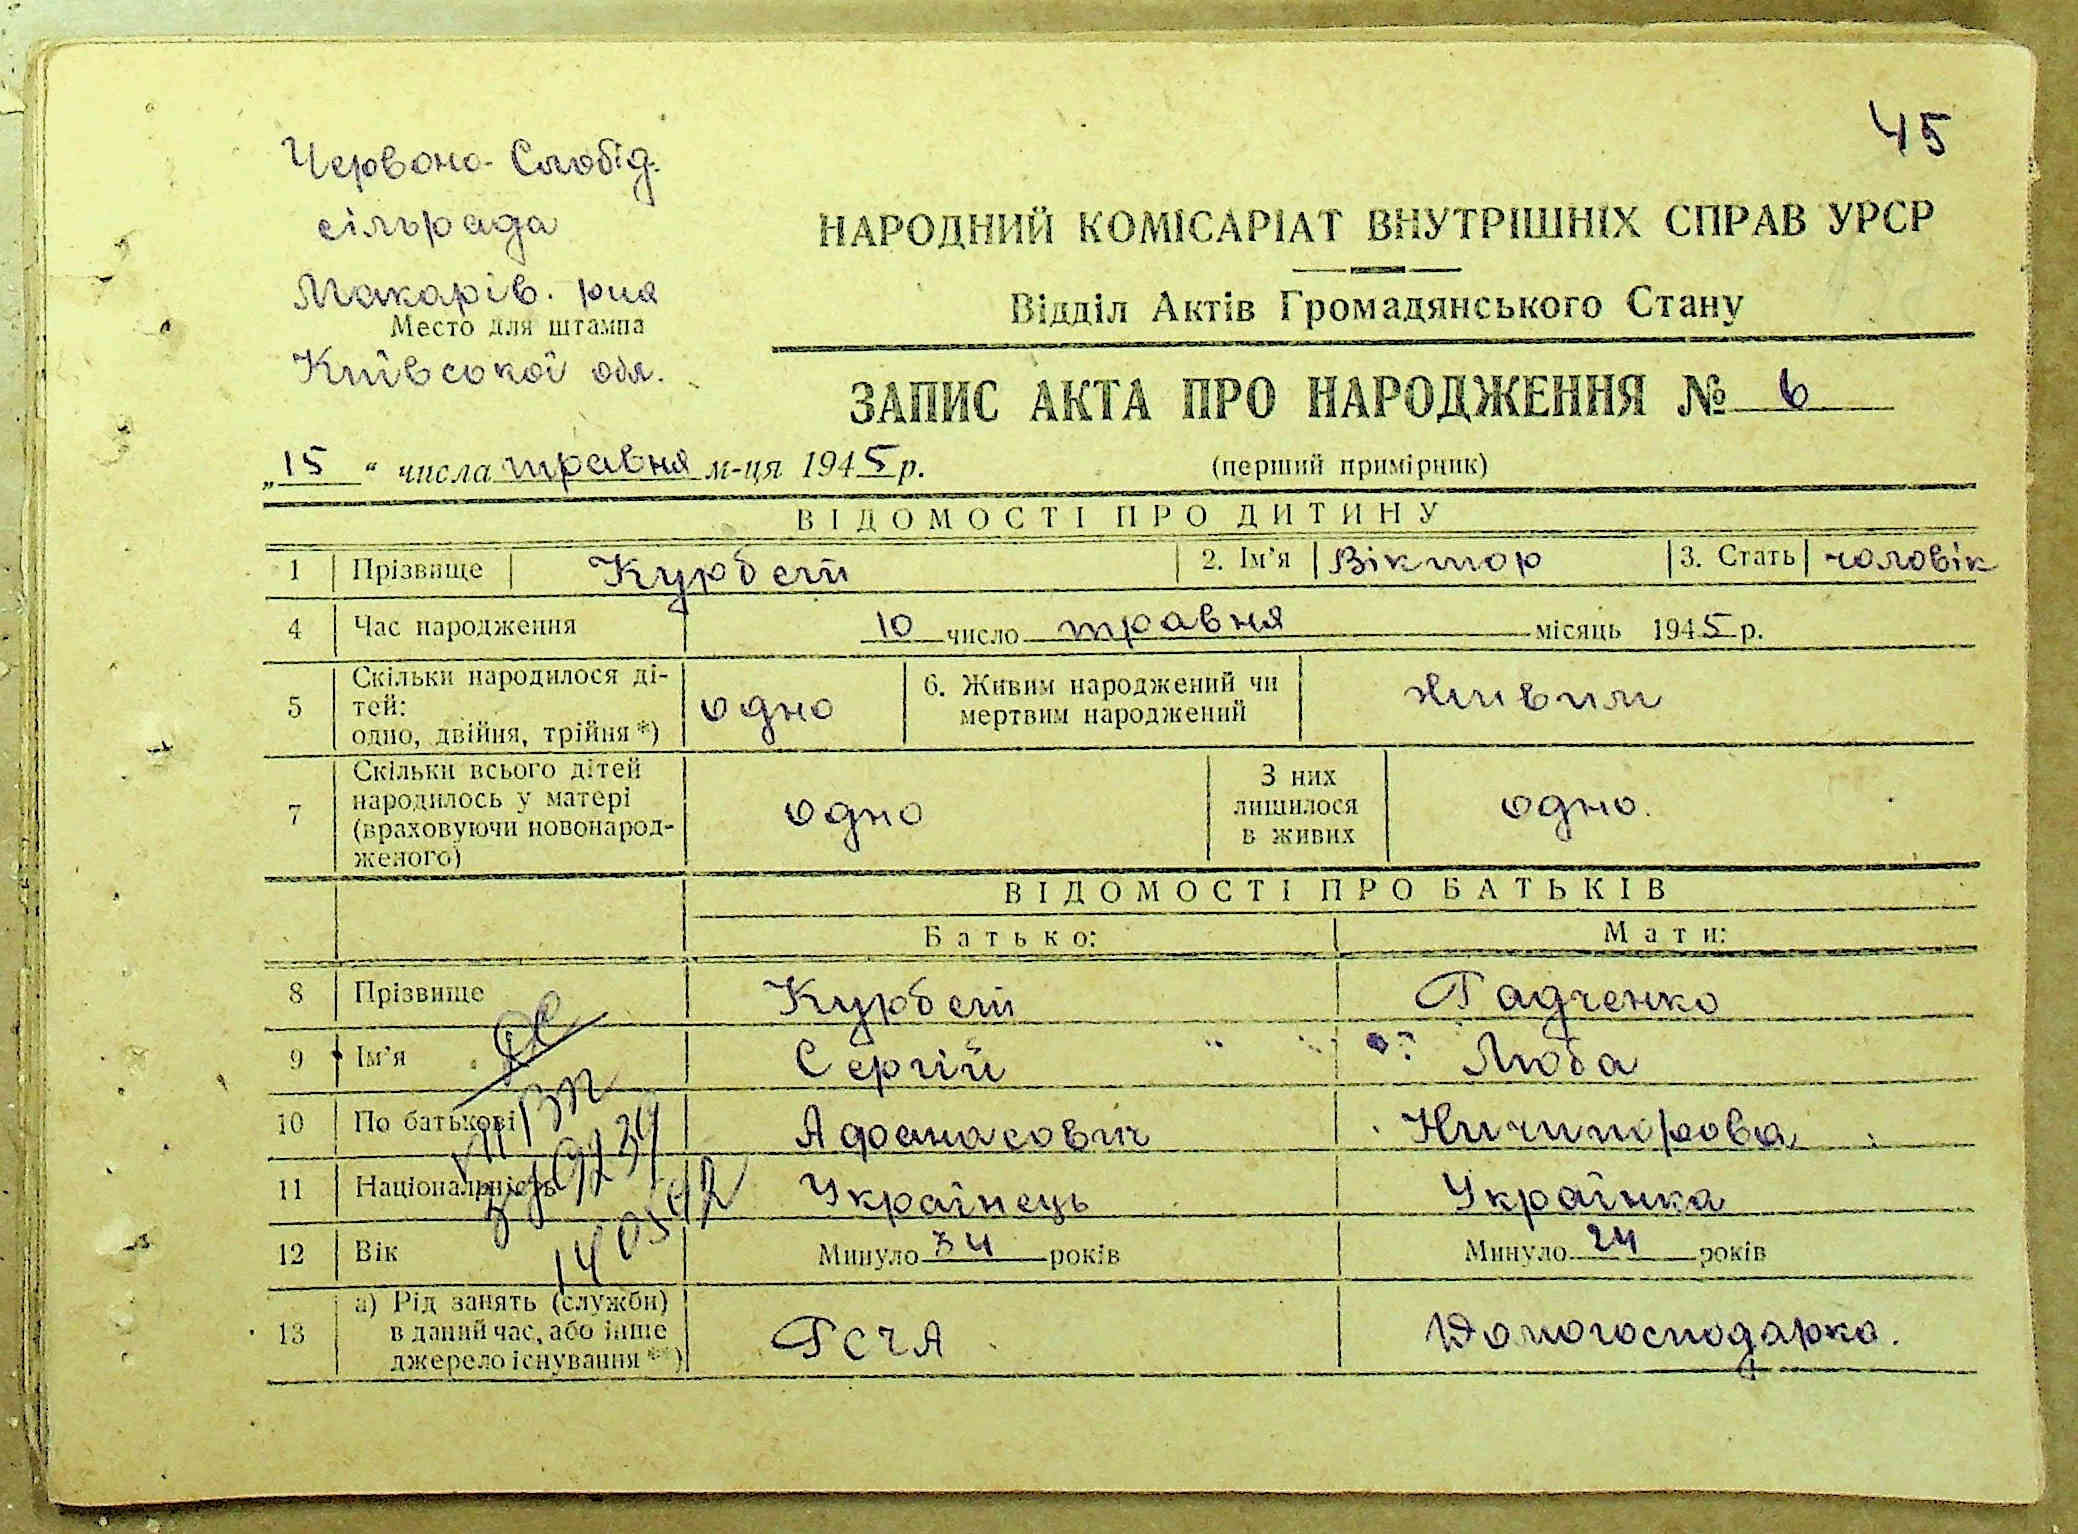 45
Червоно-Слобід.
сільрада
Макарів. р-на
Место для штампа
Київської обл.
НАРОДНИЙ КОМІСАРІАТ ВНУТРІШНІХ СПРАВ УРСР
Відділ Актів Громадянського Стану
ЗАПИС АКТА ПРО НАРОДЖЕННЯ № 6
„15“ числа травня м-ця 1945 р.
(перший примірник)
ВІДОМОСТІ ПРО ДИТИНУ
1 Прізвище Курбет 2. Ім'я Віктор 3. Стать чоловік
4 Час народження 10 число травня місяць 1945 р.
5 Скільки народилося ді-
тей:
одно, двійня, трійня *) одно 6. Живим народжений чи
мертвим народжений живим
7 Скільки всього дітей
народилось у матері
(враховуючи новонарод-
женого) одно З них
лишилося
в живих одно.
ВІДОМОСТІ ПРО БАТЬКІВ
Батько: Мати:
8 Прізвище Курбет Радченко
9 Ім'я Сергій Люба
10 По батькові Афанасович Ничипорова
11 Національність Українець Українка
12 Вік Минуло 34 років Минуло 24 років
13 а) Рід занять (служби)
в даний час, або інше
джерело існування **) РСЧА Домогосподарка.